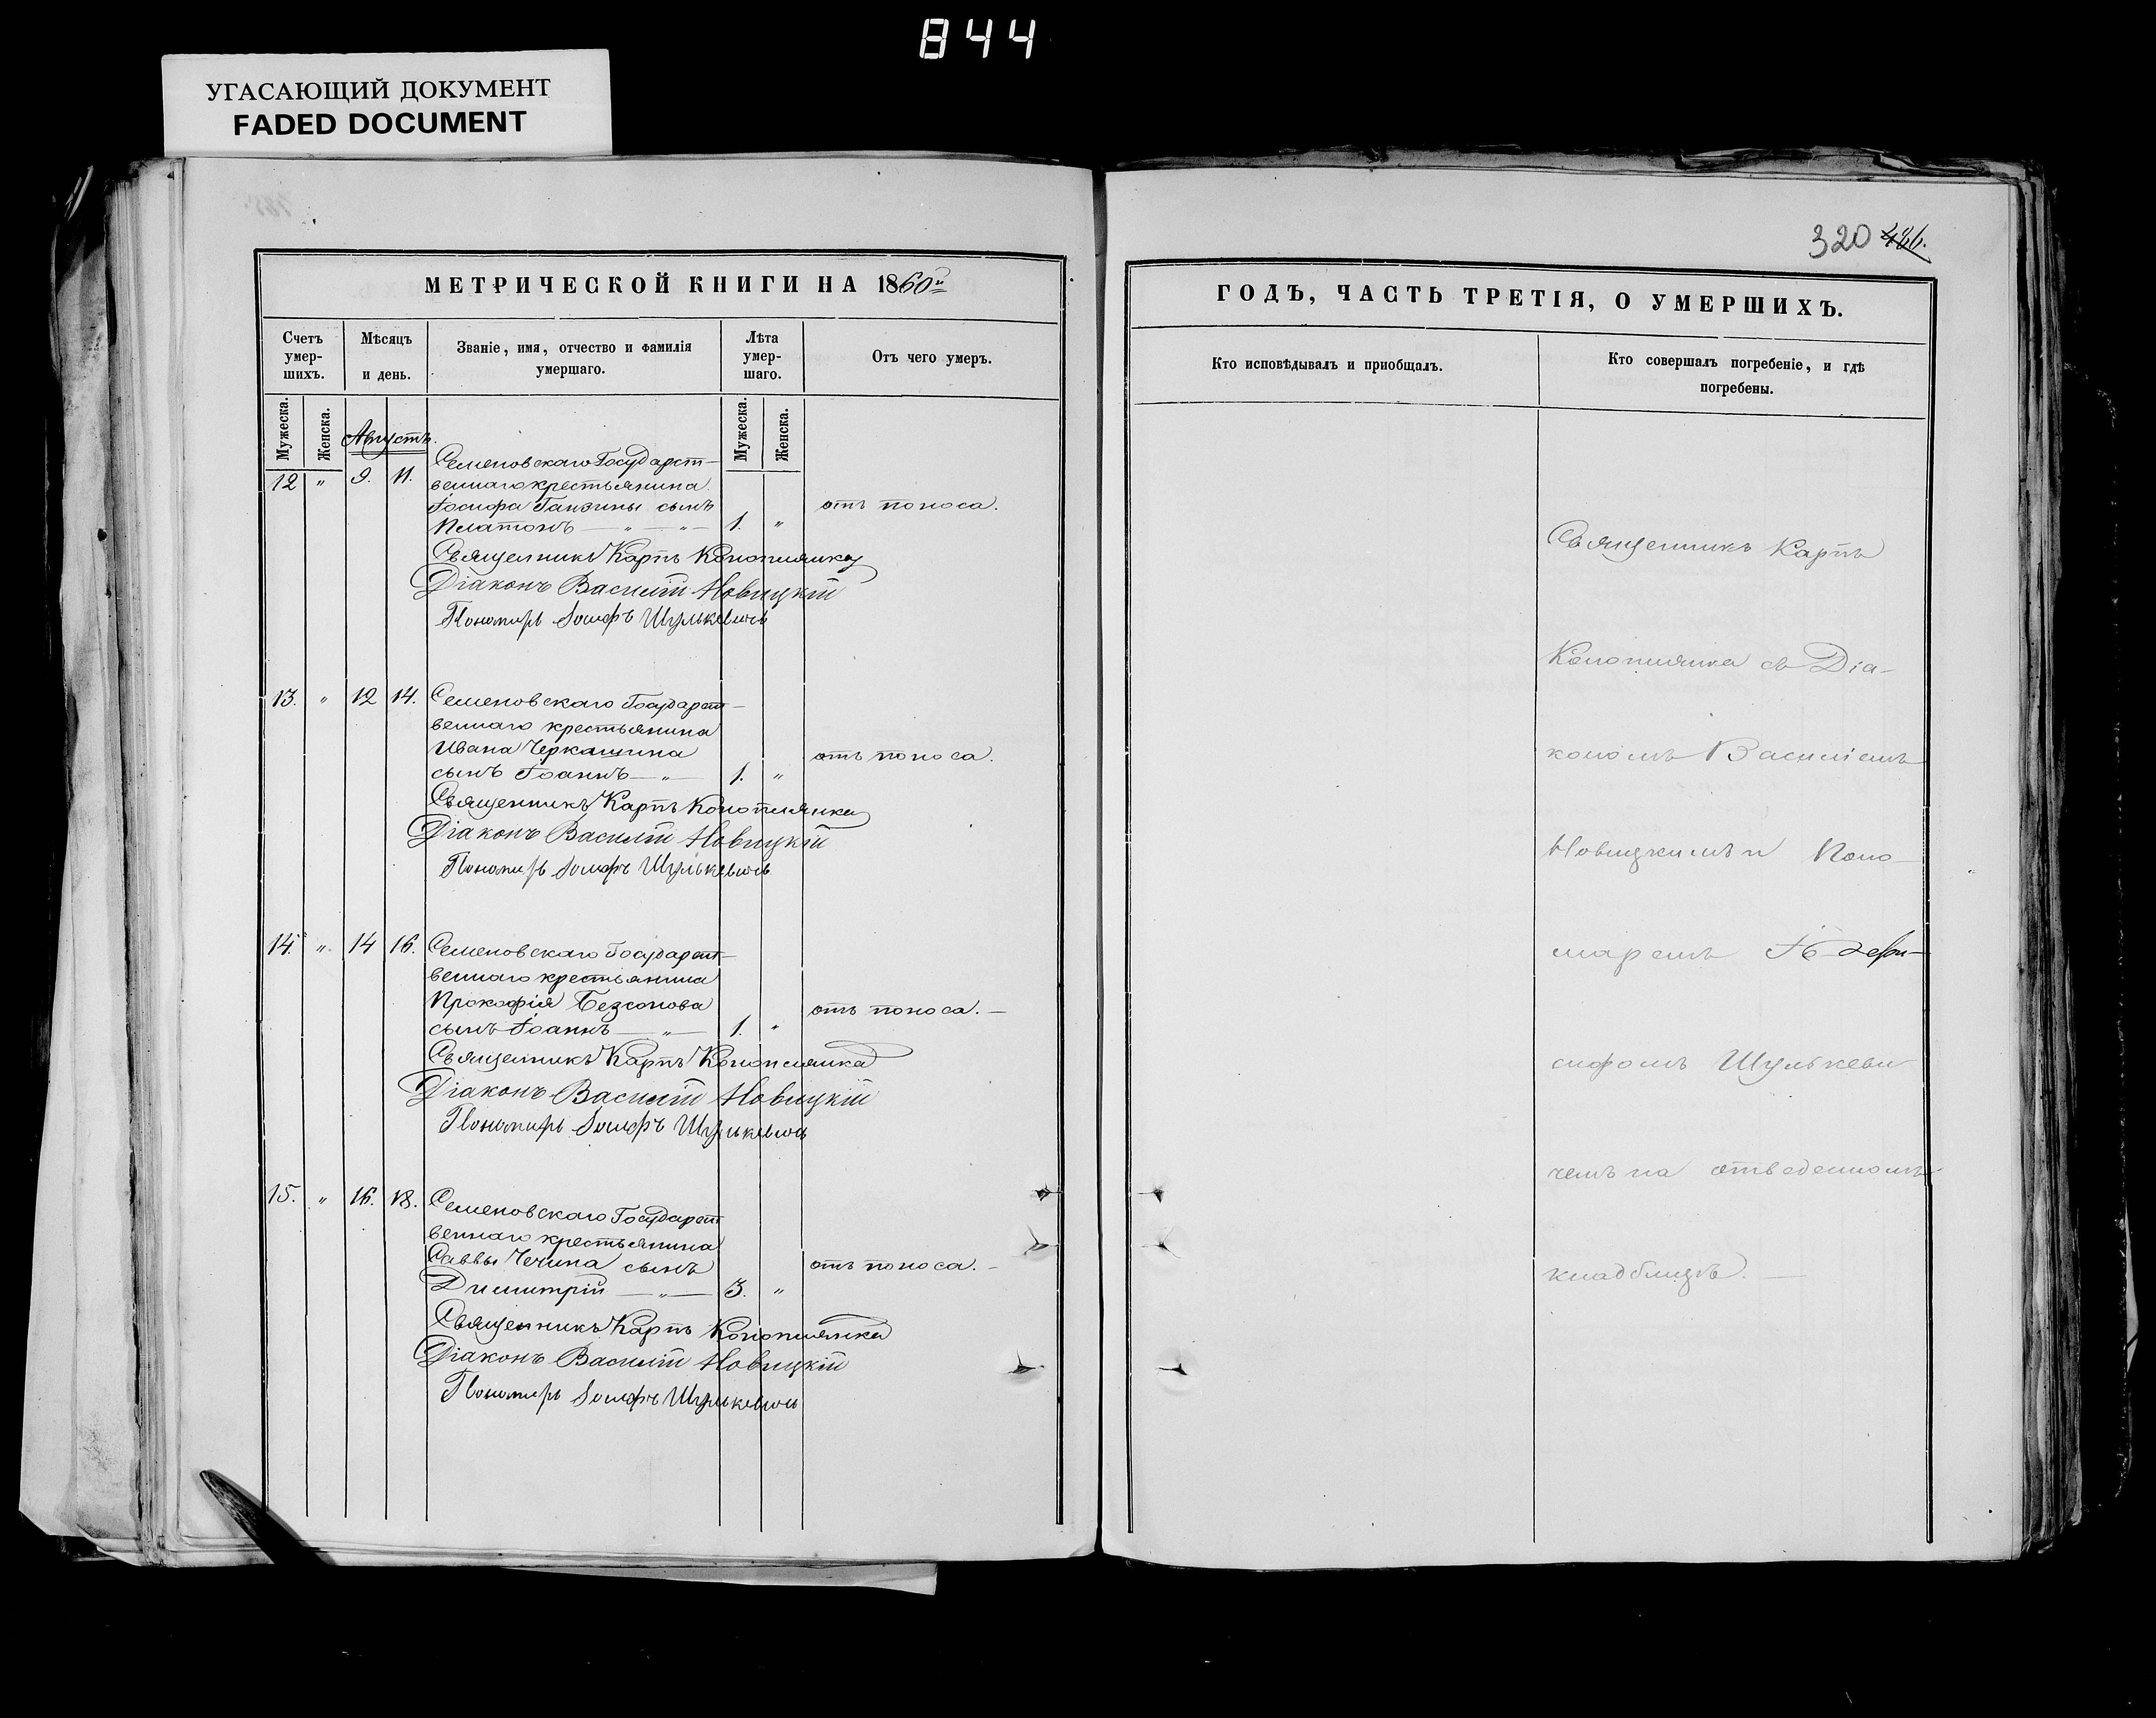 844
УГАСАЮЩИЙ ДОКУМЕНТ
FADED DOCUMENT
МЕТРИЧЕСКОЙ КНИГИ НА 1860й
Счетъ умер-шихъ.
Мѣсяцъ и день.
Званіе, имя, отчество и фамилія умершаго.
Лѣта умер-шаго.
Отъ чего умеръ.
Мужеска.
Женска.
Мужеска.
Женска.
Августъ.
12 " 9. 11. Семеновскаго Государст-
веннаго крестьянина
Іосифа Ганзины сынъ
Платонъ — " — " — 1. " отъ поноса.
Священникъ Карпъ Конопляжка
Діаконъ Василій Новицкій
Пономарь Іосифъ Шулькевичъ
13. " 12 14. Семеновскаго Государст-
веннаго крестьянина
Ивана Черкашина
сынъ Іоаннъ — " — 1. " отъ поноса.
Священникъ Карпъ Коноплянка
Діаконъ Василій Новицкій
Пономарь Іосифъ Шулькевичъ
14. " 14 16. Семеновскаго Государст-
веннаго крестьянина
Прокофія Безсонова
сынъ Іоаннъ — " — 1. " отъ поноса. —
Священникъ Карпъ Коноплянка
Діаконъ Василій Новицкій
Пономарь Іосифъ Шулькевичъ
15. " 16. 18. Семеновскаго Государст
веннаго крестьянина
Саввы Чечина сынъ
Димитрій — " — 3. " отъ поноса. —
Священникъ Карпъ Коноплянка
Діаконъ Василій Новицкій
Пономарь Іосифъ Шулькевичъ
320 486.
ГОДЪ, ЧАСТЬ ТРЕТІЯ, О УМЕРШИХЪ.
Кто исповѣдывалъ и приобщалъ.
Кто совершалъ погребеніе, и гдѣ
погребены.
Священникъ Карпъ
Коноплянка съ Діа-
кономъ Василіемъ
Новицкимъ и Поно-
маремъ
сифомъ Шулькеви
чемъ на отведенномъ
кладбищѣ. —